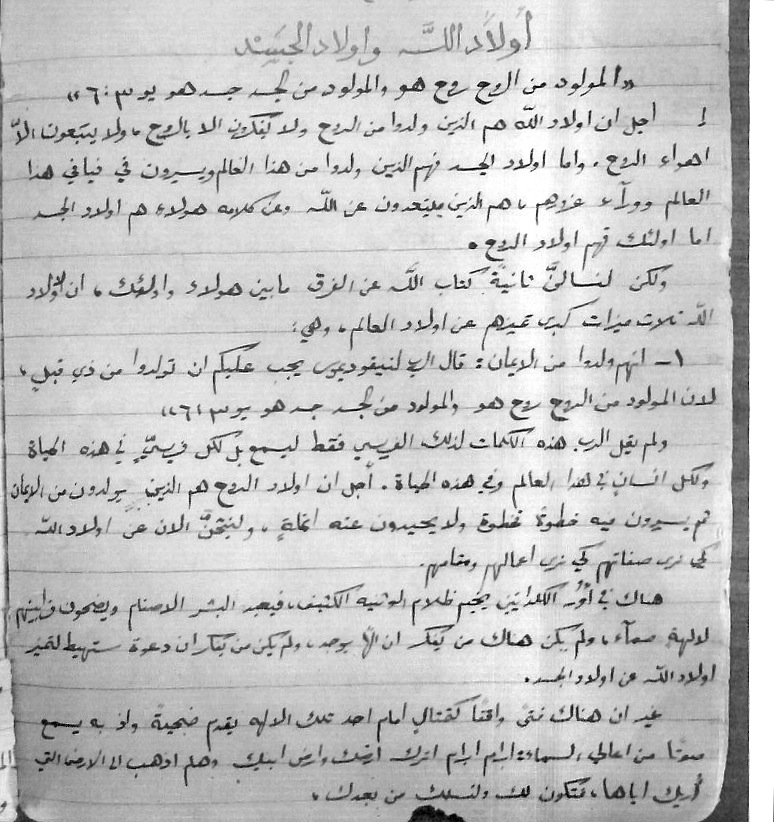 أولاد الله وأولاد الجسد
«المولود من الروح روح هو والمولود من الجسد جسد هو يو ٣ : ٦»
أجل ان اولاد الله هم الذين ولدوا من الروح ولا يفكرون الا بالروح، ولا يتبعون الا
اهواء الروح. واما اولاد الجسد فهم الذين ولدوا من هذا العالم ويسيرون في فيافي هذا
العالم ووراء غروهم، هم الذين يبتعدون عن الله وعن كلامه هولاء هم اولاد الجسد
اما اولئك فهم اولاد الروح.
ولكن لنسالنَّ ثانيةً كتاب الله عن الفرق ما بين هولاء واولئك، ان لأولاد
الله ثلاث ميزات كبرى تميزهم عن اولاد العالم، وهي:
١ـ انهم ولدوا من الايمان: قال الرب لنيقوديموس يجب عليكم ان تولدوا من ذي قبل،
لان المولود من الروح روح هو والمولود من الجسد جسد هو يو ٣ : ٦»
ولم يقل الرب هذه الكلمات لذلك الفريسي فقط ليسمع بل لكل فريسيٍّ في هذه الحياة
ولكل انسان في هذا العالم وفي هذه الحياة. أجل ان اولاد الروح هم الذين يولدون من الايمان
ثم يسيرون فيه خطوة فخطوة ولا يحيدون عنه انملةٍ، ولنبحثنَّ الان عن اولاد الله
كي نرى صفاتهم كي نرى اعمالهم ومقامهم.
هناك في أور الكلدانيين يخيم ظلام الوثنيه الكثيف، فيعبد البشر الاصنام ويضحون قرابينهم
لالهة صماء، ولم يكن هناك من يفكر ان الهًا يوجد، ولم يكن من يفكر ان دعوة ستهبط لتميز
اولاد الله عن اولاد الجسد.
غير ان هناك فتىً واقفًا كتمثالٍ امام احد تلك الالهه يقدم ضحيةً واذ به يسمع
صوتًا من اعالي السماء: ابرام ابرام اترك ارضك وارض ابيك وهلم اذهب الى الارض التي
أُريك اياها، فتكون لك ولنسلك من بعدك،